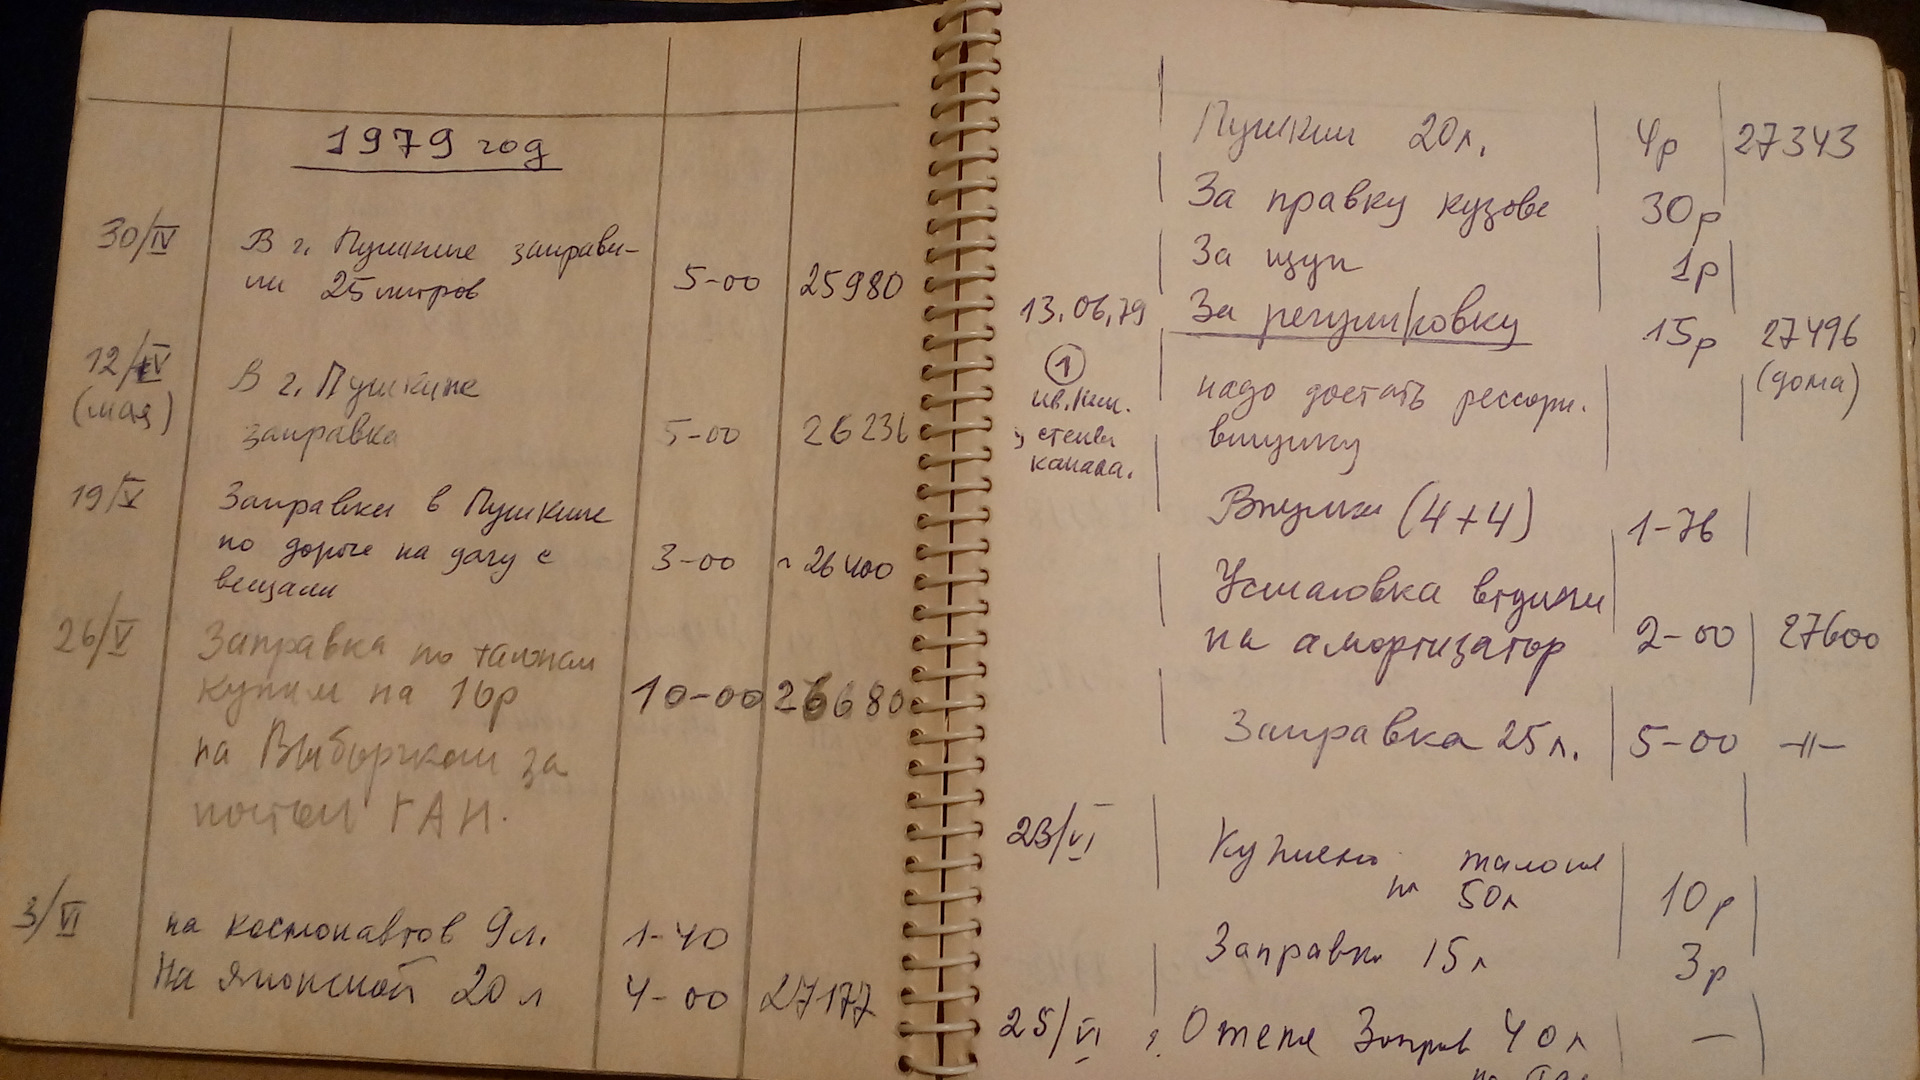 1979 год
30/IV В г. Пушкине заправи-
ли 25 литров 5-00 25980
12/V В г. Пушкине
(мая) заправка 5-00 26236
19/V Заправка в Пушкине
по дороге на дачу с 3-00 ~26400
вещами
26/V Заправка по талонам
купили на 10р 10-00 26680
на Выборгском за
постом ГАИ.
3/VI на Космонавтов 9л. 1-40
На Японской 20 л 4-00 27177
Пушкин 20л. 4р 27343
За правку кузова 30р
За щуп 1р
13.06.79 За регулировку 15р 27496
(дома)
1 надо достать рессорн.
втулку
канала.
Втулки (4+4) 1-76
Установка втулки
на амортизатор 2-00 27600
Заправка 25л. 5-00 -"-
23/VI Куплено талонов
на 50л 10р
Заправка 15л 3р
25/VI Заправ 40л —